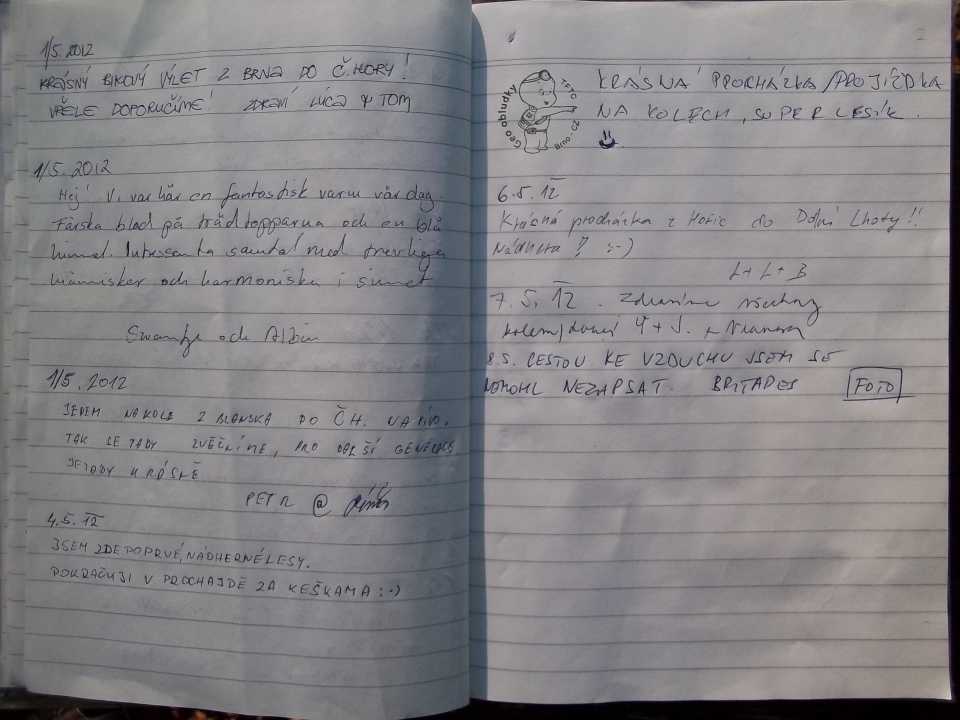 1/5.2012
KRÁSNÝ BIKOVÝ VÝLET Z BRNA DO Č.HORY!
VŘELE DOPORUČÍME! ZDRAVÍ LÚCA & TOM
1/5.2012
Hej! Vi var här en fantastisk varm vårdag.
Färska blad på trädtopparna och en blå
himmel. Intressanta samtal med trevliga
människor och harmoniska i sinnet
Swantje och Albin
1/5.2012
JEDEM NA KOLE Z BLANSKA DO ČH. NA PIVO.
TAK SE TADY ZVĚČNÍME, PRO DALŠÍ GENERACE.
JE TADY KRÁSNĚ
PETR @
4.5.12
JSEM ZDE POPRVÉ, NÁDHERNÉ LESY.
POKRAČUJI V PROCHAJDĚ ZA KEŠKAMA :-)
Geo obludky TFTC Brno.cz
KRÁSNÁ PROCHÁZKA/PROJÍŽĎKA
NA KOLECH, SUPER LESÍK.
6.5.12
Krásná procházka z Hořic do Dolní Lhoty!!
Nádhera! :-)
L+L+B
7.5.12. Zdravíme všechny
kolemjdoucí
8.5. CESTOU KE VZDUCHU JSEM SE
NEMOHL NEZAPSAT. BRITADES FOTO